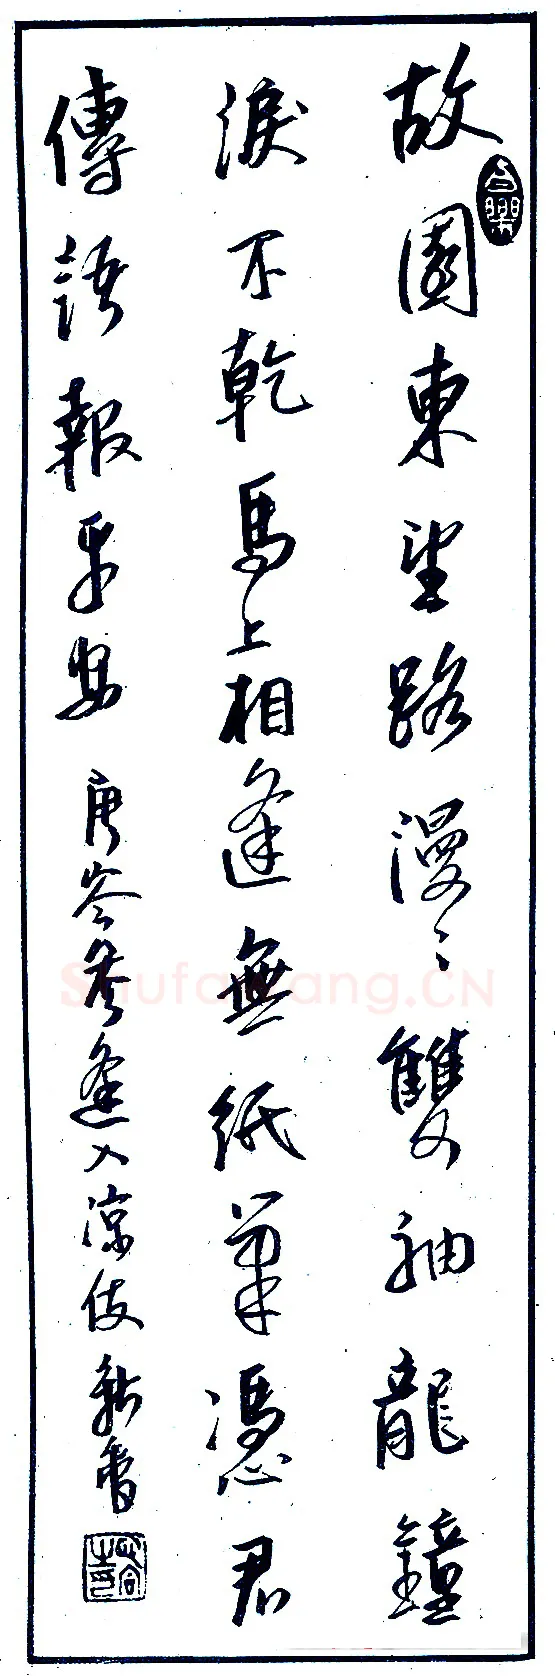 故園東望路漫々雙袖龍鐘
淚不乾馬上相逢無紙筆憑君
傳語報平安 唐岑參逢入涼使
Shufawang.CN